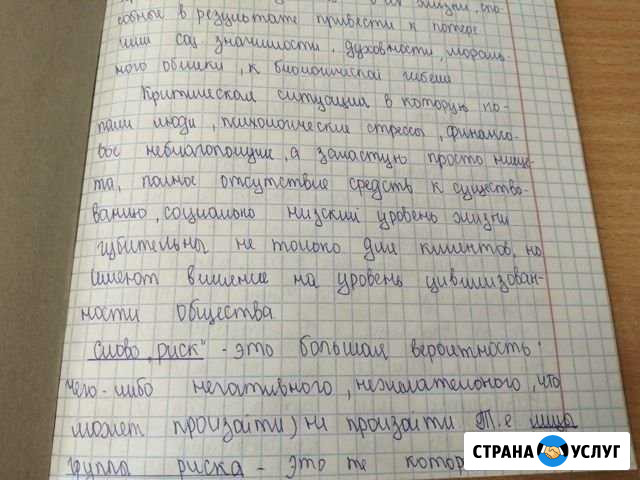 собные в результате привести к потере
ими соц значимости, духовности, мораль-
ного облика, к биологической гибели
Критическая ситуация в которую по-
пали люди, психологические стрессы, финансо-
вое неблагополучие, а зачастую просто нище-
та, полное отсутствие средств к существо-
ванию, социально низкий уровень жизни
губительны не только для клиентов, но
имеют влияние на уровень цивилизован-
ности общества
слово „риск" - это большая вероятность
чего-либо негативного, нежелательного, что
может произойти/не произойти. Т.е лица
группа риска - это те
СТРАНА УСЛУГ